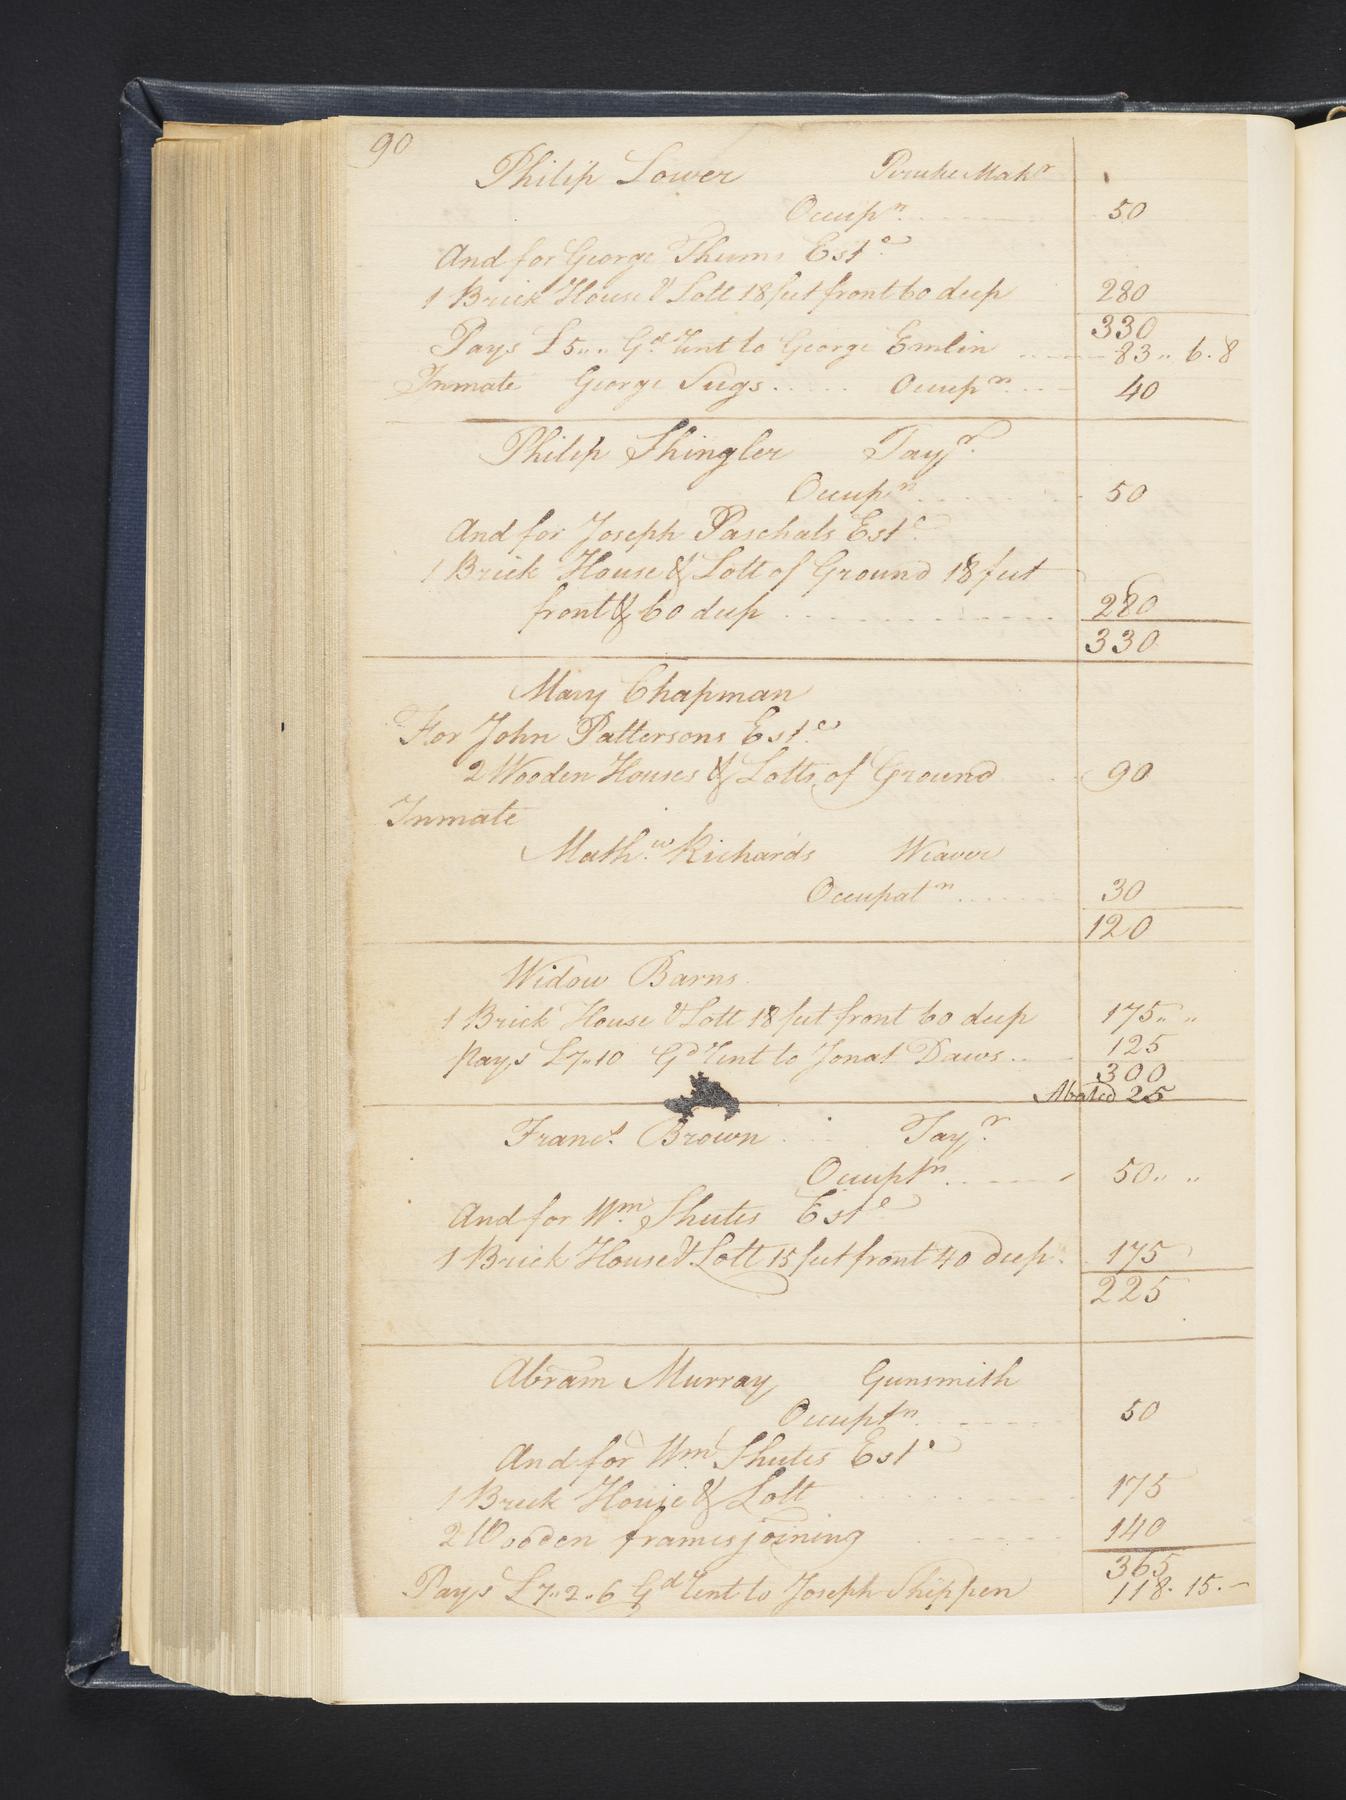 90
Philip Lower Peruke Makr
Occupn. 50
And for George Thums Este
1 Brick House & Lott 18 feet front 60 deep 280
330
Pays £5,,,, Gd. Rent to George Emlin 83,, 6. 8
Inmate George Sugs Occupn 40
Philip Shingler Tayr.
Occupn 50
And for Joseph Paschals Este
1 Brick House & Lott of Ground 18 feet
front & 60 deep 280
330
Mary Chapman
For John Pattersons Este
2 Wooden Houses & Lotts of Ground 90
Inmate
Mathw. Richards Weaver
Occupatn 30
120
Widow Barns
1 Brick House & Lott 18 feet front 60 deep 175,, ,,
Pays £7,,10 Gd Rent to Jonat Daws 125
300
Abated 25
Francs. Brown Tayr.
Occuptn 50,, ,,
And for Wm. Shutes Este
1 Brick House & Lott 15 feet front 40 deep 175
225
Abram Murray Gunsmith
Occuptn 50
And for Wm. Shutes Este
1 Brick House & Lott 175
2 Wooden frames joining 140
365
Pays £7,,2,,6 Gd Rent to Joseph Shippen 118. 15. –